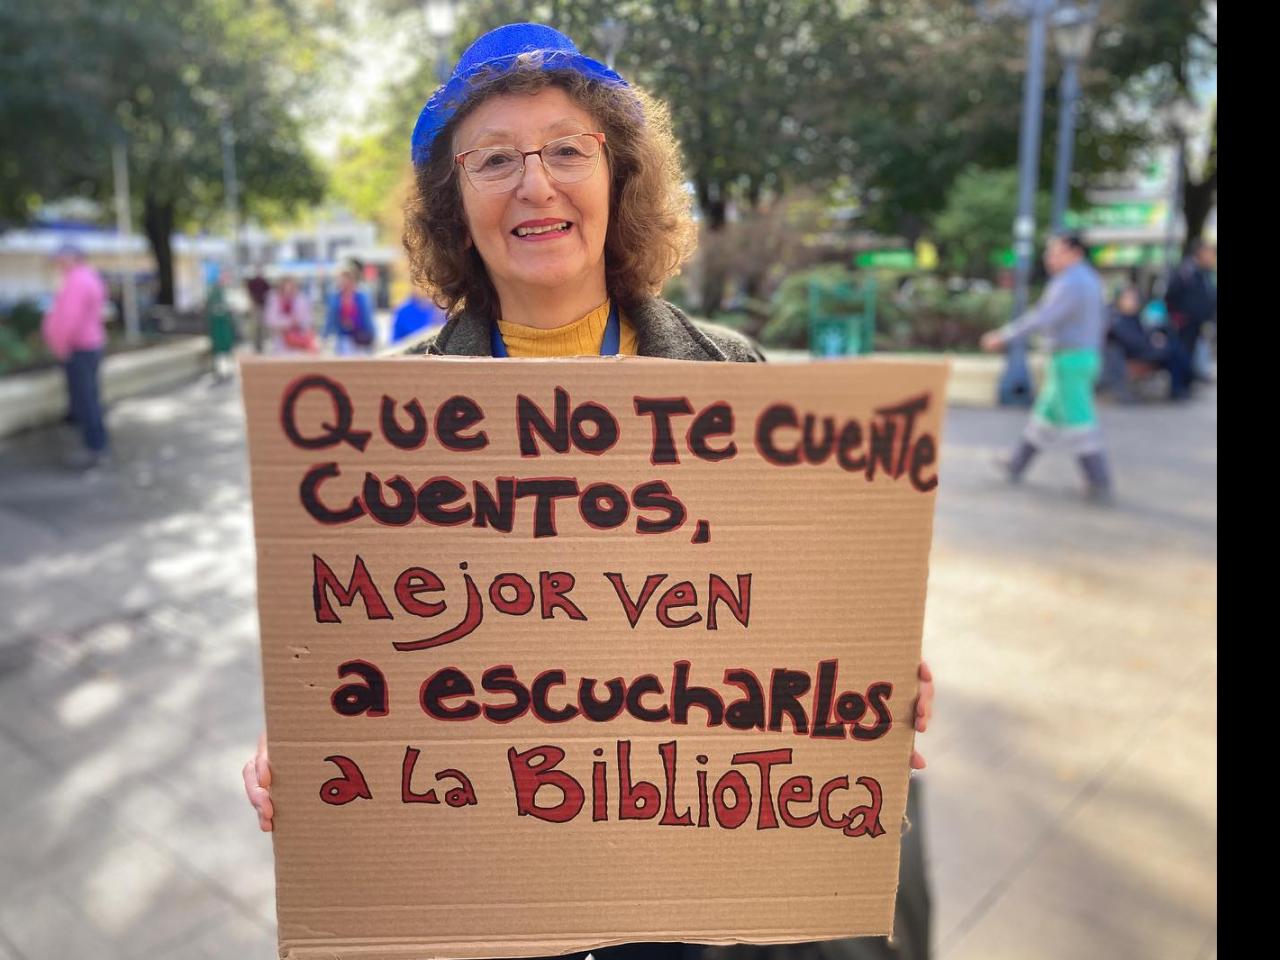 Que no te cuente
cuentos,
Mejor ven
a escucharlos
a la Biblioteca